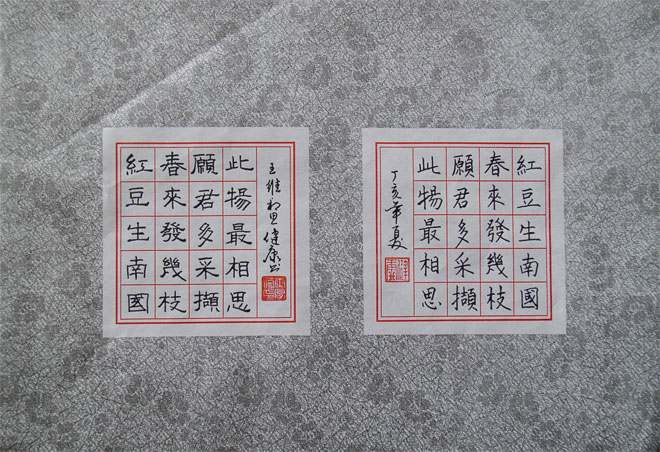 紅豆生南國
春來發幾枝
願君多采擷
此物最相思
王維相思 健康书
紅豆生南國
春來發幾枝
願君多采擷
此物最相思
丁亥年夏